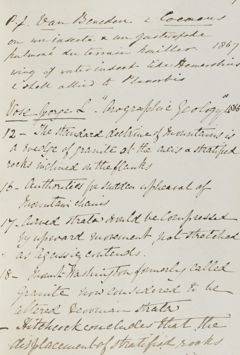 P. J. Van Beneden & Coemans
on un insecte & un gasteropode
pulmoné du terrain houiller 1867
wing of insect like Hemerobius
& shell allied to Planorbis
Vose George L. "Orographic Geology" 1866
12 — The standard doctrine of Mountains is
a wedge of granite at the axis & stratified
rocks inclined on the flanks
16 — Authorities for sudden upheaval of
Mountain chains
17. strata would be compressed
by upward movement, not stretched
as contends.
18 — Mount Washington formerly called
Granite now considered to be
altered Devonian strata
— Hitchcock concludes that the
displacement of stratified rocks